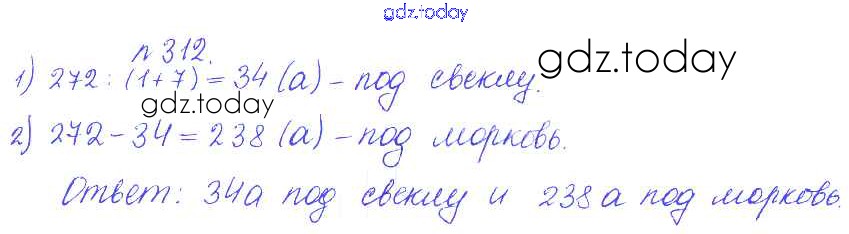 gdz.today
n 312.
gdz.today
1) 272 : (1+7) = 34 (а) – под свеклу.
gdz.today
2) 272 – 34 = 238 (а) – под морковь.
Ответ: 34а под свеклу и 238 а под морковь.